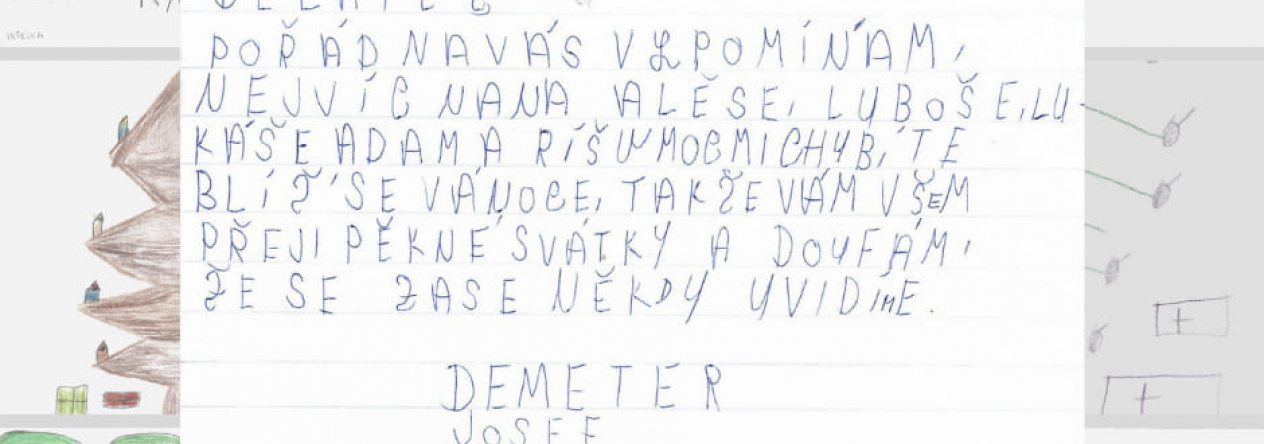 POŘÁD NA VÁS VZPOMÍNÁM,
NEJVÍC NA NA ALEŠE, LUBOŠE, LU-
KÁŠE ADAM A RÍŠU MOC MI CHYBÍTE
BLÍŽÍ SE VÁNOCE, TAKŽE VÁM VŠEM
PŘEJI PĚKNÉ SVÁTKY A DOUFÁM,
ŽE SE ZASE NĚKDY UVIDÍME.
DEMETER
JOSEF